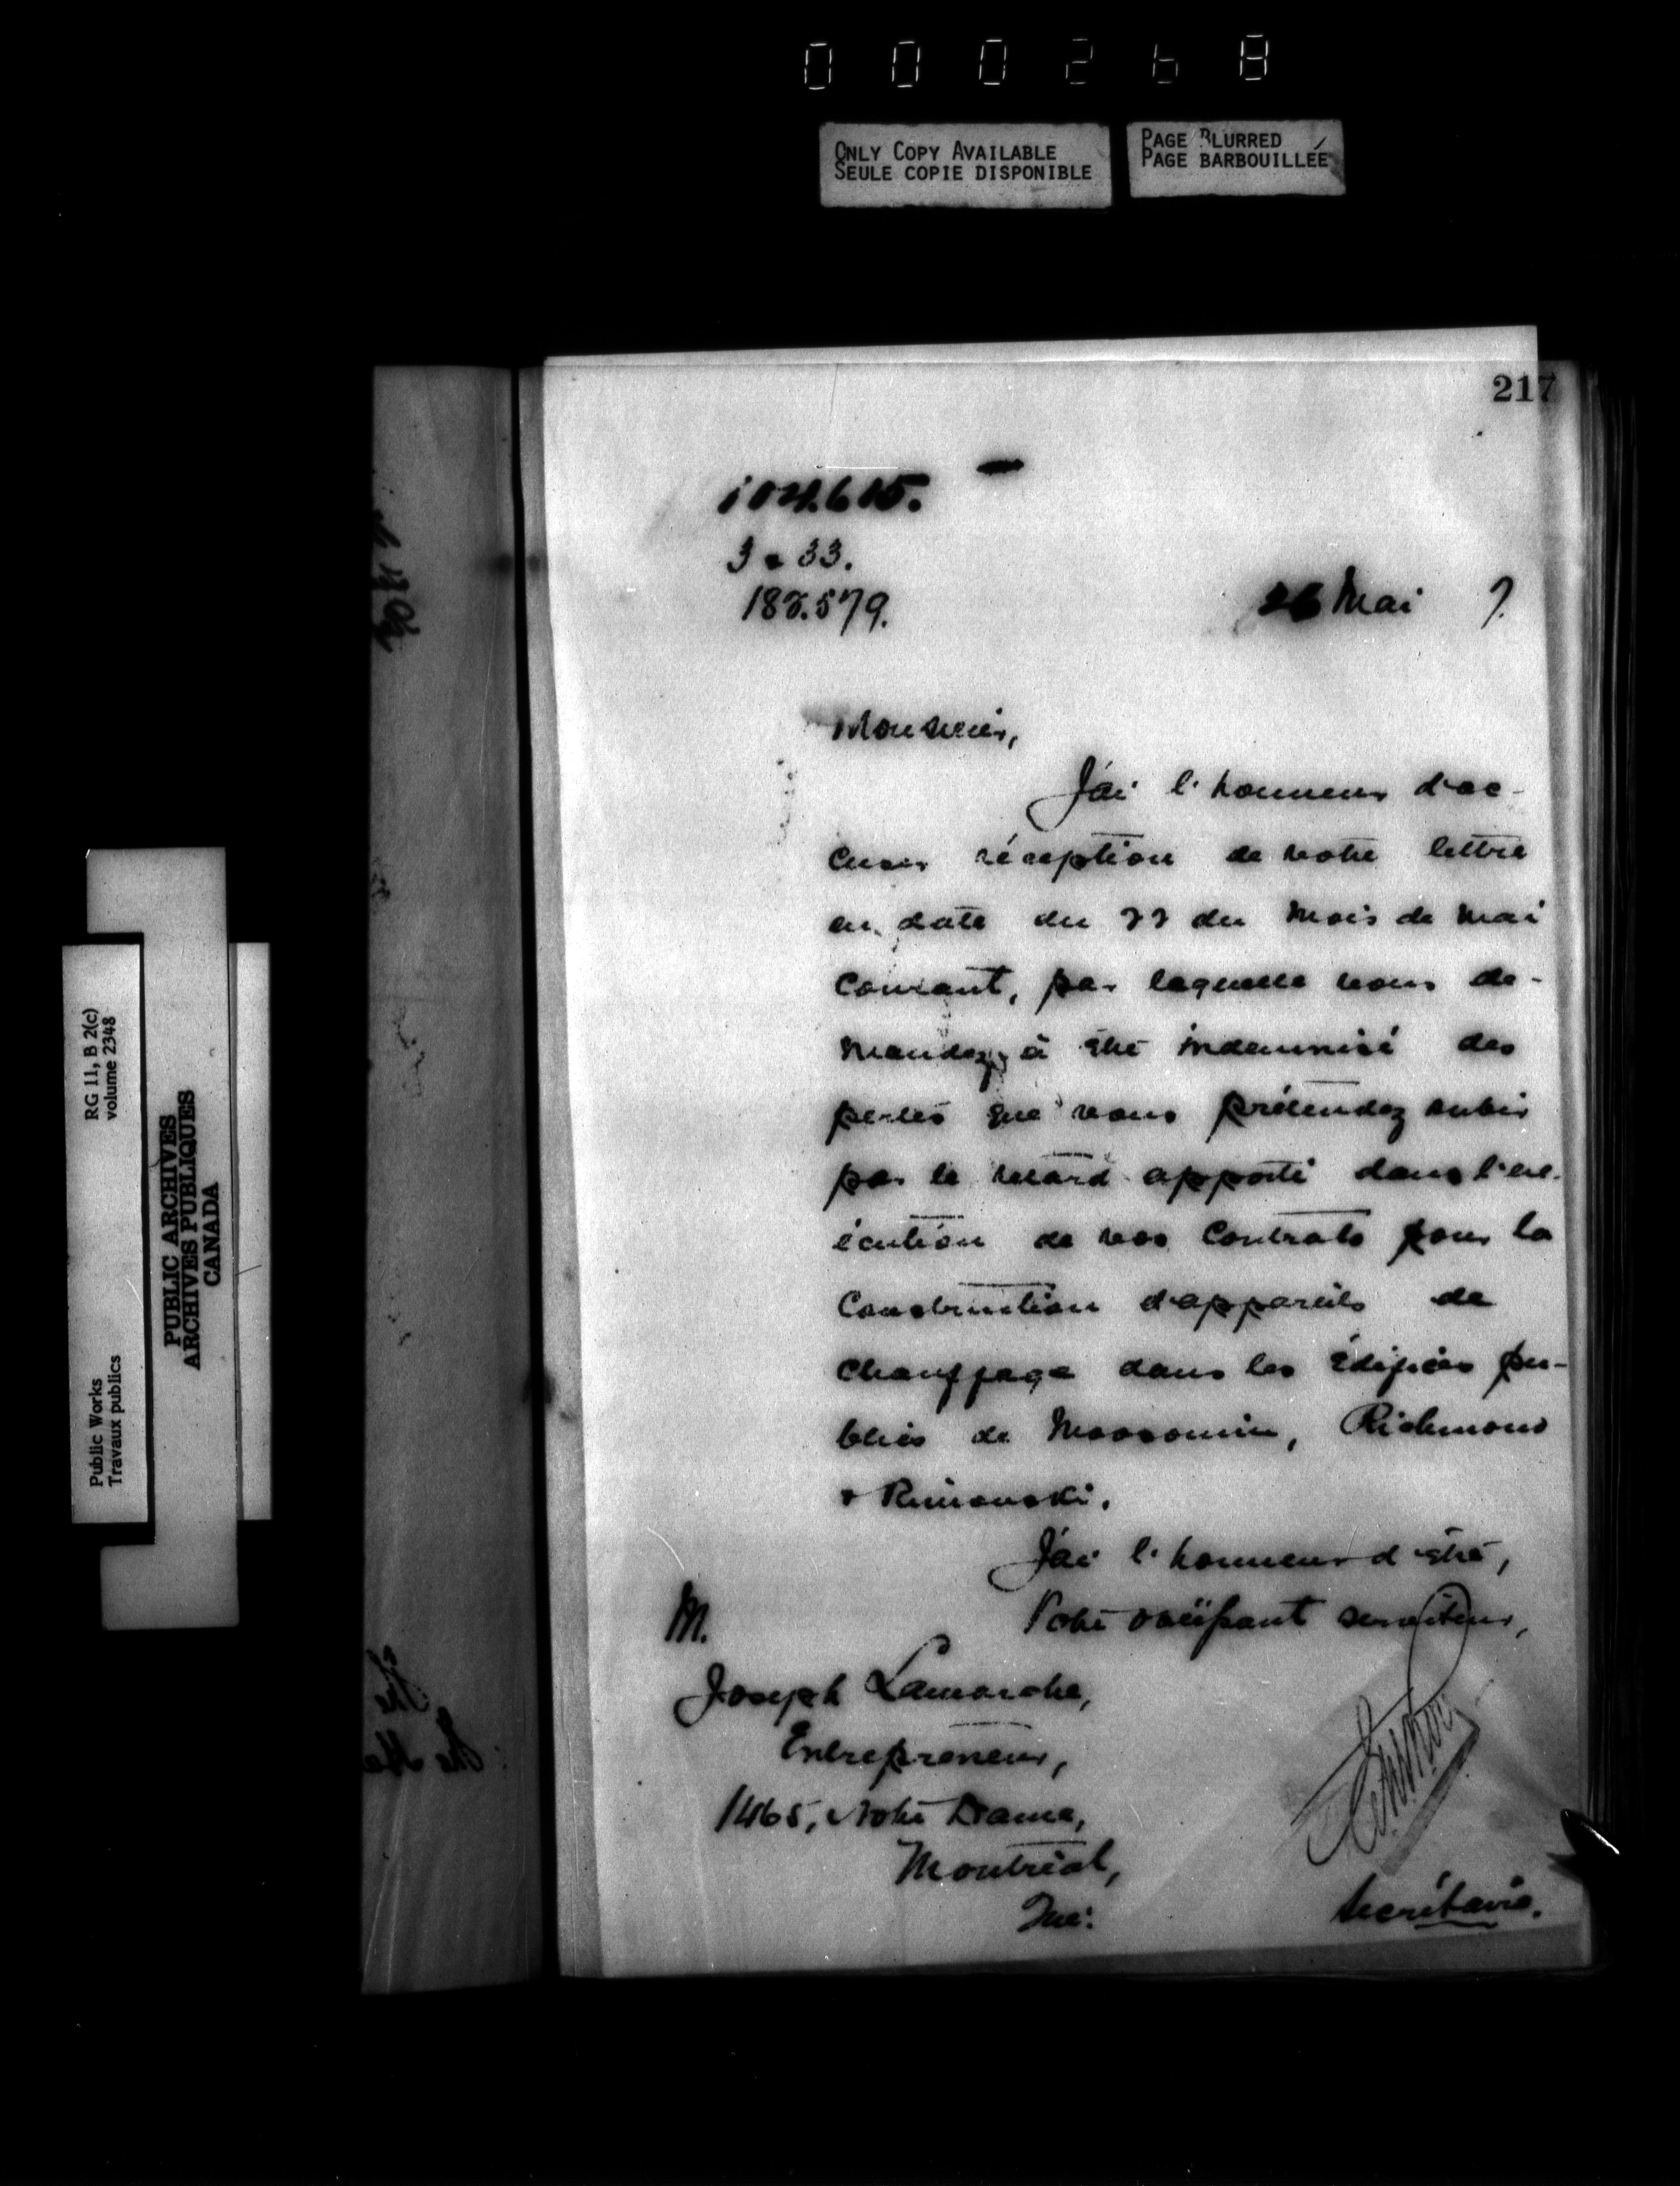 000268
ONLY COPY AVAILABLE
SEULE COPIE DISPONIBLE
PAGE BLURRED
PAGE BARBOUILLÉE
217
104.615.
3 - 33.
182.579.
26 Mai 7.
Monsieur,
J'ai l'honneur d'ac-
cuser réception de votre lettre
en date du 22 du mois de mai
courant, par laquelle vous de-
mandez à être indemnisé des
pertes que vous prétendez subir
par le retard apporté dans l'ex-
écution de vos contrats pour la
construction d'appareils de
chauffage dans les édifices pu-
blics de Moosomin, Richmond
& Rimouski.
J'ai l'honneur d'être,
Votre obéissant serviteur,
M.
Joseph Lamarche,
Entrepreneur,
1465, Notre Dame,
Montréal,
Qué:
Secrétaire.
RG 11, B 2(c)
volume 2348
Public Works
Travaux publics
PUBLIC ARCHIVES
ARCHIVES PUBLIQUES
CANADA